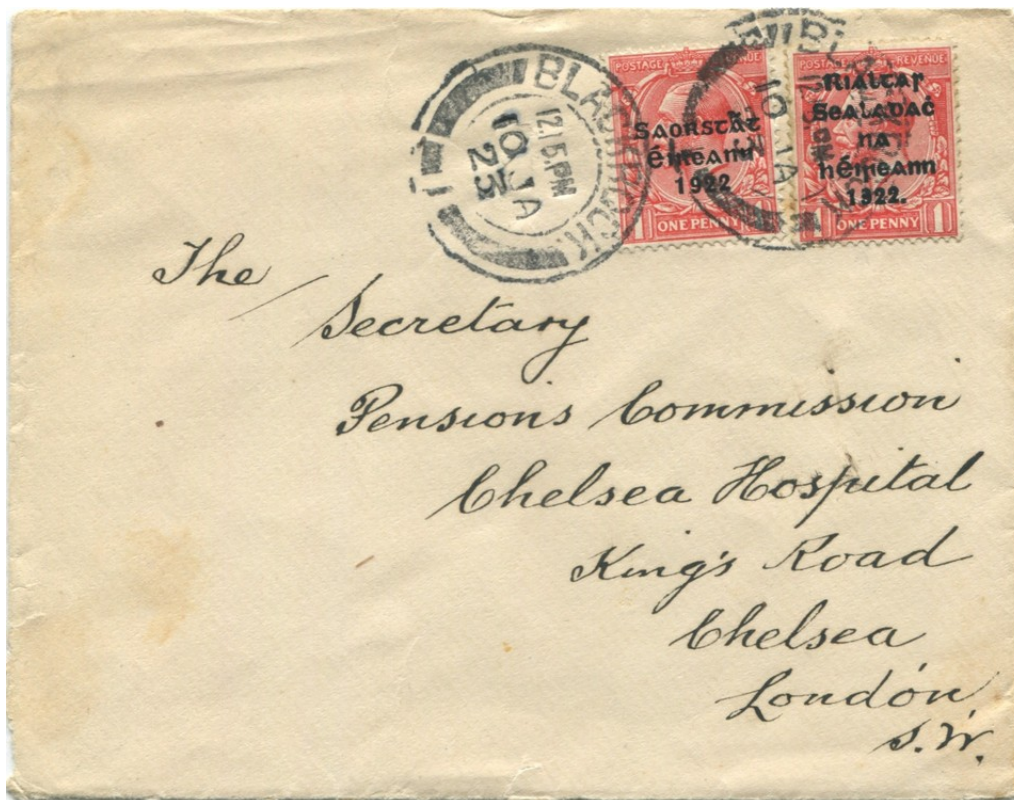 BLACKROCK.
12.15.PM
10 JA
23
POSTAGE REVENUE
Saorstát
Éireann
1922
1 ONE PENNY
POSTAGE REVENUE
Rialtas
Sealadaċ
na
hÉireann
1922.
1 ONE PENNY 1
10 JA
The
Secretary
Pensions Commission
Chelsea Hospital
King's Road
Chelsea
London
S.W.